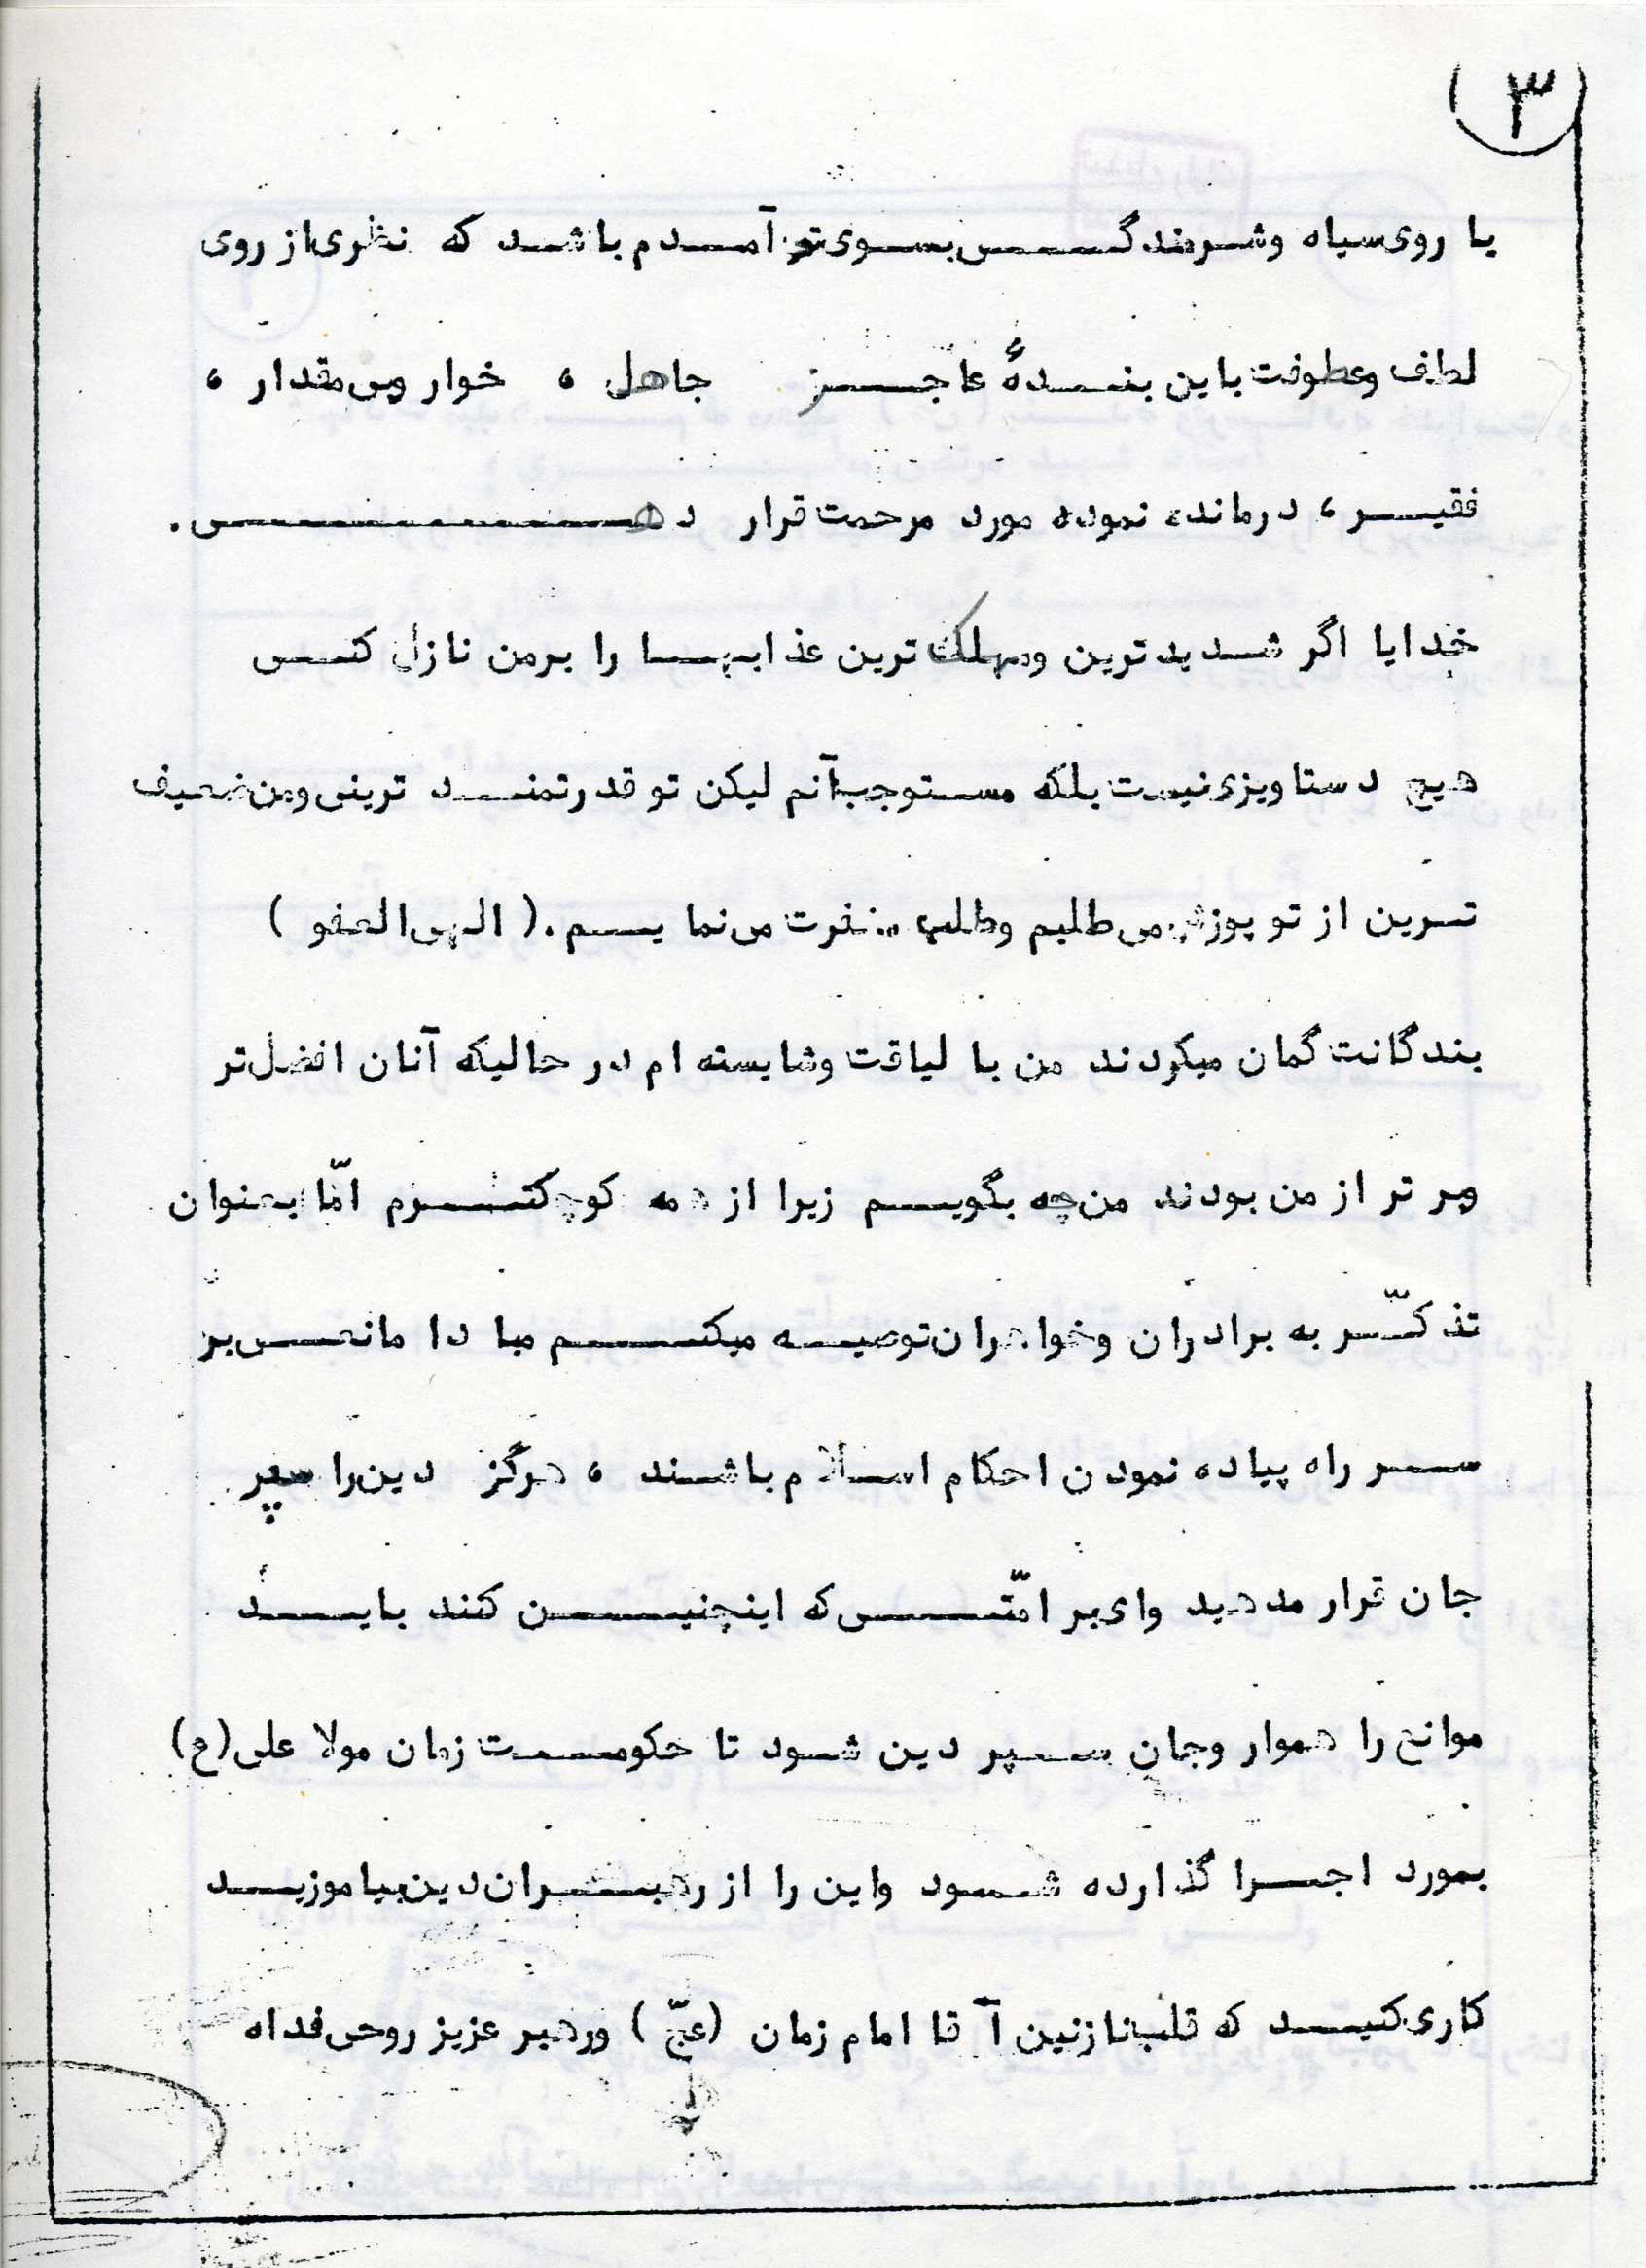 (۳)
با روی سیاه وشرمندگی بسوی تو آمدم باشد که نظری از روی
لطف وعطوفت باین بندهٔ عاجز جاهل ، خوار وبی مقدار ،
فقیر ، درمانده نموده مورد مرحمت قرار دهی .
خدایا اگر شدیدترین ومهلک ترین عذابها را برمن نازل کنی
هیچ دستاویزی نیست بلکه مستوجب آنم لیکن تو قدرتمند ترینی ومن ضعیف
ترین از تو پوزش می طلبم وطلب مغفرت می نمایم . ( الهی العفو )
بندگانت گمان میکردند من با لیاقت وشایسته ام در حالیکه آنان افضل تر
وبر تر از من بودند من چه بگویم زیرا از همه کوچکترم امّا بعنوان
تذکّر به برادران وخواهران توصیه میکنم مبادا مانعی بر
سر راه پیاده نمودن احکام اسلام باشند ، هرگز دین را سپر
جان قرار مدهید وای بر امّتی که اینچنین کند باید
موانع را هموار وجان سپر دین شود تا حکومت زمان مولا علی (ع)
بمورد اجرا گذارده شود واین را از رهبران دین بیاموزید
کاری کنید که قلب نازنین آقا امام زمان (عجّ ) ورهبر عزیز روحی فداه